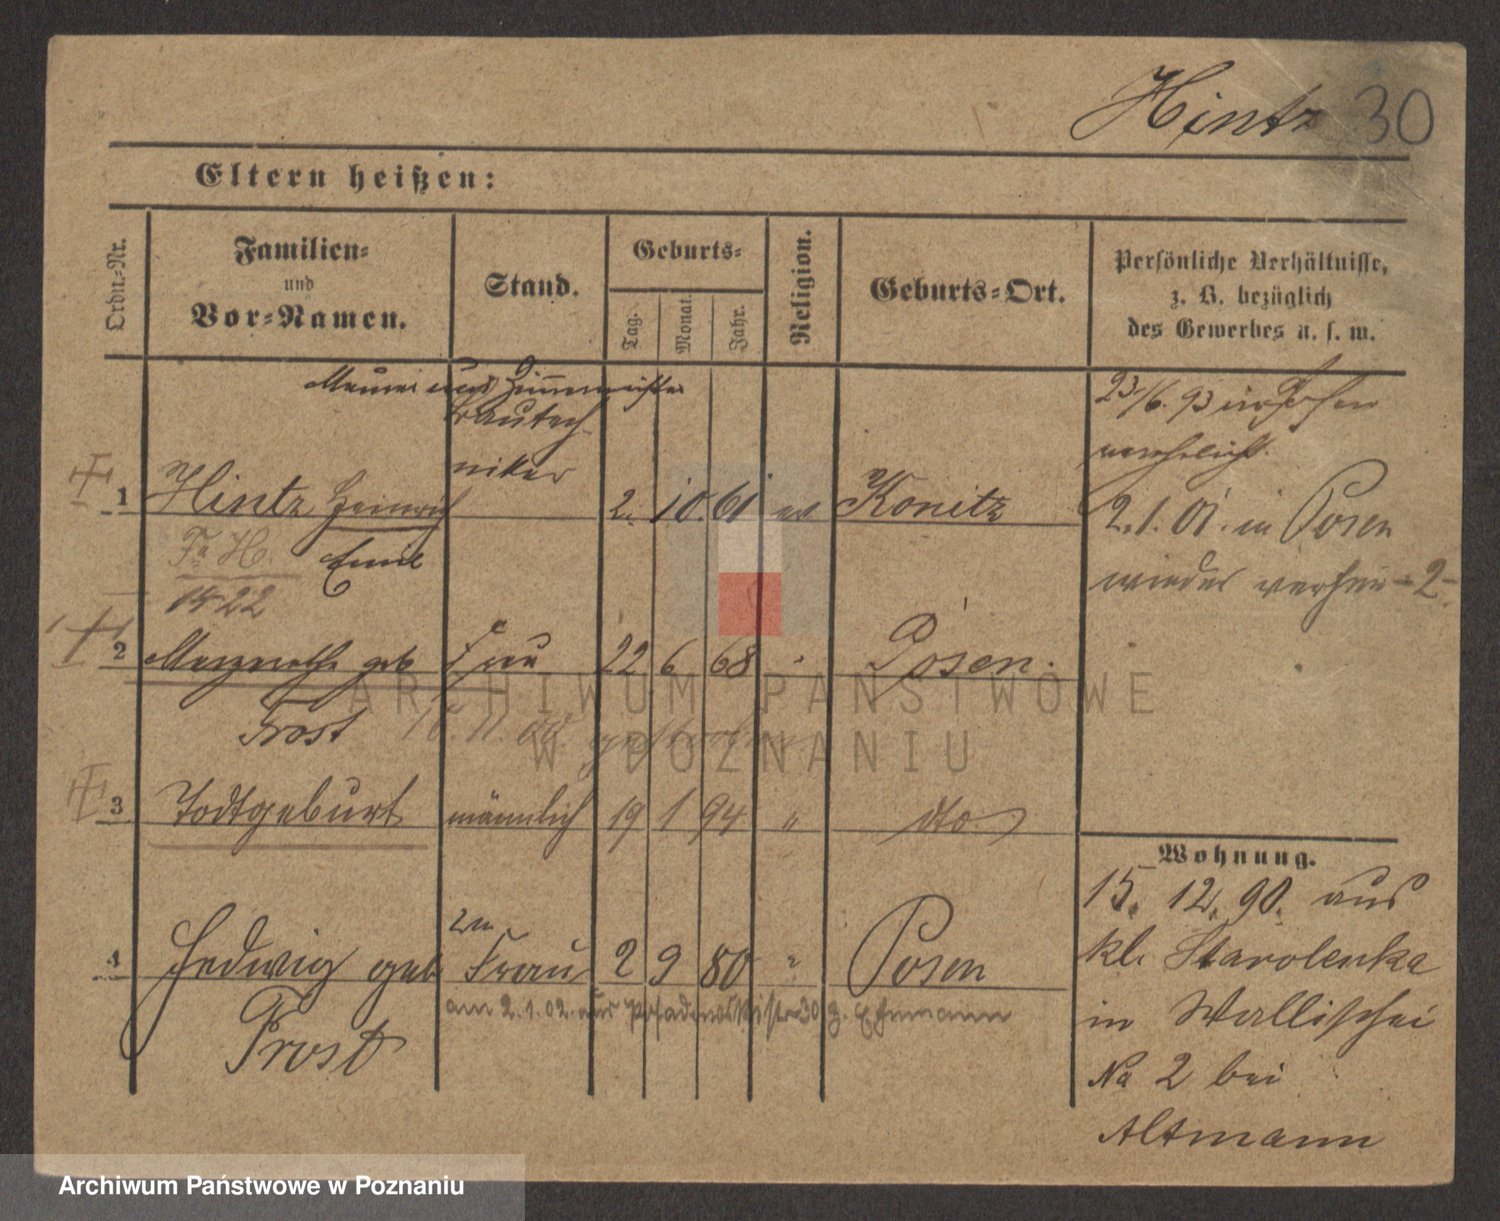 Hintz 30
Eltern heißen:
Ordn.-Nr.
Familien-
und
Vor-Namen.
Stand.
Geburts-
Tag.
Monat.
Jahr.
Religion.
Geburts-Ort.
Persönliche Verhältnisse,
z. B. bezüglich
des Gewerbes u. s. w.
Maurer und Zimmermeister
Bautech-
niker
23/6. 93 in Posen
verehelicht.
1 Hintz Heinrich 2. 10. 61 ev Konitz
2. 1. 01. in Posen
Fr. H. Emil
wieder verheir -2-
15 22
2 Margarethe geb Frau 22 6 68 " Posen.
Prost 10. 11. 00. gestorben
3 Todtgeburt männlich 19 1 94 " dto.
Wohnung.
15. 12. 90. aus
kl. Starolenka
in Wallischei
No 2 bei
Altmann
4 Hedwig geb Frau 2 9 80 " Posen
Prost
am 2. 1. 02. aus 30 z. Ehemann
ARCHIWUM PAŃSTWOWE
W POZNANIU
Archiwum Państwowe w Poznaniu